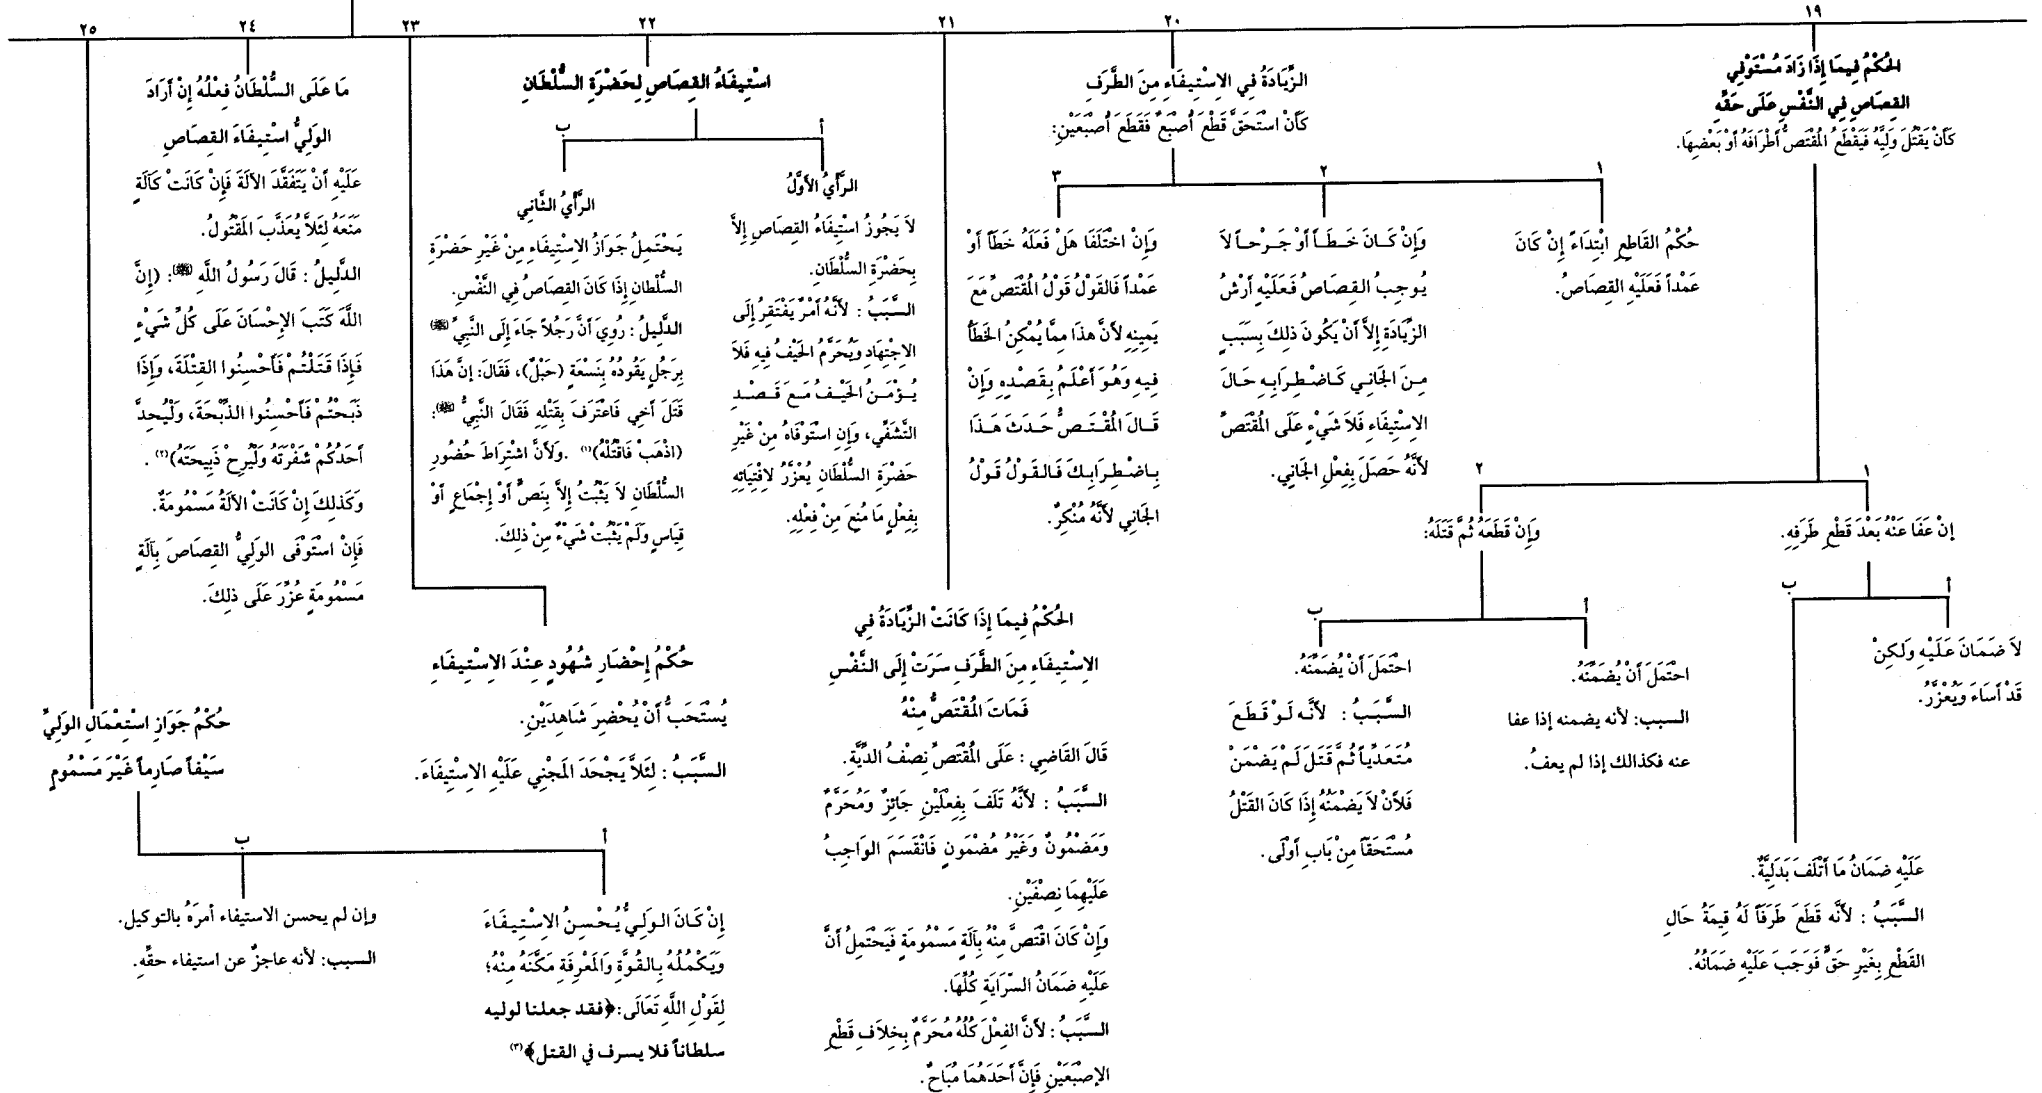 ١٩
الحُكْمُ فِيمَا إِذَا زَادَ مُسْتَوْفِي
القِصَاصِ فِي النَّفْسِ عَلَى حَقِّهِ
كَأَنْ يَقْتُلَ وَلِيَّهُ فَيَقْطَعُ المُقْتَصُّ أَطْرَافَهُ أَوْ بَعْضِهَا.
١
إنْ عَفَا عَنْهُ بَعْدَ قَطْعِ طَرَفِهِ.
أ
لاَ ضَمَانَ عَلَيْهِ وَلَكِنْ
قَدْ أَسَاءَ وَيُعْزَّرُ.
ب
عَلَيْهِ ضَمَانُ مَا أَتْلَفَ بَدَلِيَّةٌ.
السَّبَبُ : لأَنَّه قَطَعَ طَرَفَاً لَهُ قِيمَةُ حَالِ
القَطْعِ بِغَيْرِ حَقٍّ فَوَجَبَ عَلَيْهِ ضَمَانُهُ.
٢
وَإِنْ قَطَعَهُ ثُمَّ قَتَلَهُ:
أ
احْتَمَلَ أَنْ يُضَمِّنَهُ.
السبب: لأنه يضمنه إذا عفا
عنه فكذالك إذا لم يعفُ.
ب
احْتَمَلَ أَنْ يُضَمِّنَهُ.
السَّبَبُ : لأَنَّه لَوْ قَطَعَ
مُتَعَدِّيَاً ثُمَّ قَتَلَ لَمْ يَضْمَنْ
فَلأَنْ لاَ يَضْمَنُهُ إِذَا كَانَ القَتْلُ
مُسْتَحَقَّاً مِنْ بَابِ أَوْلَى.
٢٠
الزِّيَادَةُ فِي الاِسْتِيفَاءِ مِنَ الطَّرَفِ
كَأَنْ اسْتَحَقَّ قَطْعَ أُصْبَعٌ فَقَطَعَ أُصْبَعَيْنِ:
١
حُكْمُ القَاطِعِ ابْتِدَاءً إِنْ كَانَ
عَمْداً فَعَلَيْهِ القِصَاصُ.
٢
وَإِنْ كَانَ خَطَأً أَوْ جَرْحاً لاَ
يُوجِبُ القِصَاصُ فَعَلَيْهِ أَرْشُ
الزِّيَادَةِ إِلاَّ أَنْ يَكُونَ ذلِكَ بِسَبَبٍ
مِنَ الجَانِي كَاضْطِرَابِهِ حَالَ
الاِسْتِيفَاءِ فَلاَ شَيْءَ عَلَى المُقْتَصِّ
لأَنَّهُ حَصَلَ بِفِعْلِ الجَانِي.
٣
وَإِنْ اخْتَلَفَا هَلْ فَعَلَهُ خَطَأً أَوْ
عَمْداً فَالقَوْلُ قَوْلُ المُقْتَصُّ مَعَ
يَمِينِهِ لأَنَّ هذَا مِمَّا يُمْكِنُ الخَطَأُ
فِيهِ وَهُوَ أَعْلَمُ بِقَصْدِهِ وَإِنْ
قَالَ المُقْتَصُّ حَدَثَ هَذَا
بِاضْطِرَابِكَ فَالقَوْلُ قَوْلُ
الجَانِي لأَنَّهُ مُنْكِرٌ.
٢١
الحُكْمُ فِيمَا إِذَا كَانَتْ الزِّيَادَةُ فِي
الاِسْتِيفَاءِ مِنَ الطَّرَفِ سَرَتْ إِلَى النَّفْسِ
فَمَاتَ المُقْتَصُّ مِنْهُ
قَالَ القَاضِي : عَلَى المُقْتَصِّ نِصْفُ الدِّيَّةِ.
السَّبَبُ : لأَنَّهُ تَلَفَ بِفِعْلَيْنِ جَائِزٌ وَمُحَرَّمٌ
وَمَضْمُونٌ وَغَيْرُ مُضْمَونٍ فَانْقَسَمَ الوَاجِبُ
عَلَيْهِمَا نِصْفَيْنِ.
وَإِنْ كَانَ اقْتَصَّ مِنْهُ بِآلَةٍ مَسْمُومَةٍ فَيَحْتَمِلُ أَنَّ
عَلَيْهِ ضَمَانُ السِّرَايَةِ كُلِّهَا.
السَّبَبُ : لأَنَّ الفِعْلَ كُلُّهُ مُحَرَّمٌ بِخِلاَفِ قَطْعِ
الإصْبَعَيْنِ فَإِنَّ أَحَدَهُمَا مُبَاحٌ.
٢٢
اسْتِيفَاءُ القِصَاصِ لِحَضْرَةِ السُّلْطَانِ
أ
الرَّأْيُ الأَوَّلُ
لاَ يَجُوزُ اسْتِيفَاءُ القِصَاصِ إِلاَّ
بِحَضْرَةِ السُّلْطَانِ.
السَّبَبُ : لأَنَّهُ أَمْرٌ يَفْتَقِرُ إِلَى
الاِجْتِهَادِ وَيُحَرَّمُ الحَيْفُ فِيهِ فَلاَ
يُؤْمَنُ الحَيْفُ مَعَ قَصْدِ
التَّشَفِّي، وَإِنِ اسْتَوْفَاهُ مِنْ غَيْرِ
حَضْرَةِ السُّلْطَانِ يُعْزَّرُ لاِفْتِيَاتِهِ
بِفِعْلٍ مَا مُنِعَ مِنْ فِعْلِهِ.
ب
الرَّأْيُ الثَّانِي
يَحْتَمِلُ جَوَازُ الاِسْتِيفَاءِ مِنْ غَيْرِ حَضْرَةِ
السُّلْطَانِ إِذَا كَانَ القِصَاصُ فِي النَّفْسِ.
الدَّلِيلُ : رُوِيَ أَنَّ رَجُلاً جَاءَ إِلَى النَّبِيِّ ﷺ
بِرَجُلٍ يَقُودُهُ بِنَسْعَةٍ (حَبْلٌ)، فَقَالَ: إِنَّ هَذَا
قَتَلَ أَخِي فَاعْتَرَفَ بِقَتْلِهِ فَقَالَ النَّبِيُّ ﷺ:
(اذْهَبْ فَاقْتُلْهُ)(١) .وَلأَنَّ اشْتِرَاطَ حُضُورِ
السُّلْطَانِ لاَ يَثْبُتُ إِلاَّ بِنَصٍّ أَوْ إِجْمَاعٍ أَوْ
قِيَاسٍ وَلَمْ يَثْبُتْ شَيْءٌ مِنْ ذلِكَ.
٢٣
حُكْمُ إِحْضَارِ شُهُودٍ عِنْدَ الاِسْتِيفَاءِ
يُسْتَحَبُّ أَنْ يُحْضِرَ شَاهِدَيْنِ.
السَّبَبُ : لِئَلاَّ يَجْحَدَ المَجْنِي عَلَيْهِ الاِسْتِيفَاءَ.
٢٤
مَا عَلَى السُّلْطَانُ فِعْلُهُ إِنْ أَرَادَ
الوَلِيُّ اسْتِيفَاءَ القِصَاصِ
عَلَيْهِ أَنْ يَتَفَقَّدَ الآلَةَ فَإِنْ كَانَتْ كَآلَةٍ
مَنَعَهُ لِئَلاَّ يُعَذَّبَ المَقْتُولُ.
الدَّلِيلُ : قَالَ رَسُولُ اللَّهِ ﷺ: (إِنَّ
اللَّهَ كَتَبَ الإِحْسَانَ عَلَى كُلِّ شَيْءٍ
فَإِذَا قَتَلْتُمْ فَأَحْسِنُوا القِتْلَةَ، وَإِذَا
ذَبَحْتُمْ فَأَحْسِنُوا الذِّبْحَةَ، وَلْيُحِدَّ
أَحَدُكُمْ شَفْرَتَهُ وَلْيُرِحْ ذَبِيحَتَهُ)(٢) .
وَكَذلِكَ إِنْ كَانَتْ الآلَةُ مَسْمُومَةٌ.
فَإِنْ اسْتَوْفَى الوَلِيُّ القِصَاصَ بِآلَةٍ
مَسْمُومَةٍ عُزِّرَ عَلَى ذلِكَ.
٢٥
حُكْمُ جَوَازِ اسْتِعْمَالِ الوَلِيِّ
سَيْفَاً صَارِماً غَيْرَ مَسْمُومٍ
أ
إِنْ كَانَ الوَلِيُّ يُحْسِنُ الاِسْتِيفَاءَ
وَيَكْمُلُهُ بِالقُوَّةِ وَالمَعْرِفَةِ مَكَّنَهُ مِنْهُ؛
لِقَوْلِ اللَّهِ تَعَالَى:﴿فقد جعلنا لوليه
سلطاناً فلا يسرف في القتل﴾(٣)
ب
وإن لم يحسن الاستيفاء أمرَهُ بالتوكيل.
السبب: لأنه عاجزٌ عن استيفاء حقّهِ.